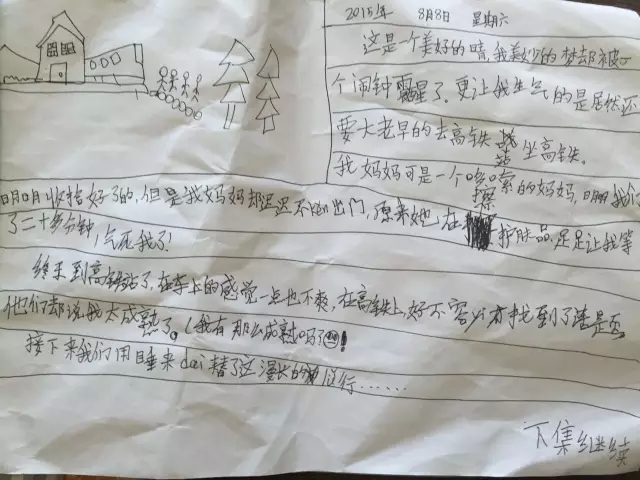 2015年 8月8日 星期六
这是一个美好的晴,我美妙的梦却被一
个闹钟醒了。更让我生气的是居然还
要大老早的去高铁站坐高铁。
我妈妈可是一个啰嗦的妈妈,明明我们
明明收拾好了的,但是我妈妈却迟迟不出门,原来她在擦护肤品,足足让我等
了二十多分钟,气死我了!
终于到高铁站了,在车上的感觉一点也不爽,在高铁上,好不容易才找到了
他们却说我太成熟了。(我有那么成熟吗?)!
接下来我们用睡来dai替了这漫长的旅行……
下集继续